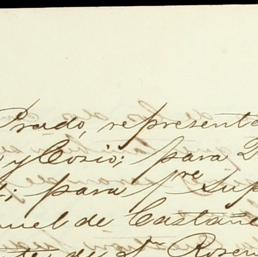 Prado, representa
y Cosio; para D
para Pre Sup
uel de Castañe
de Dn Rosen